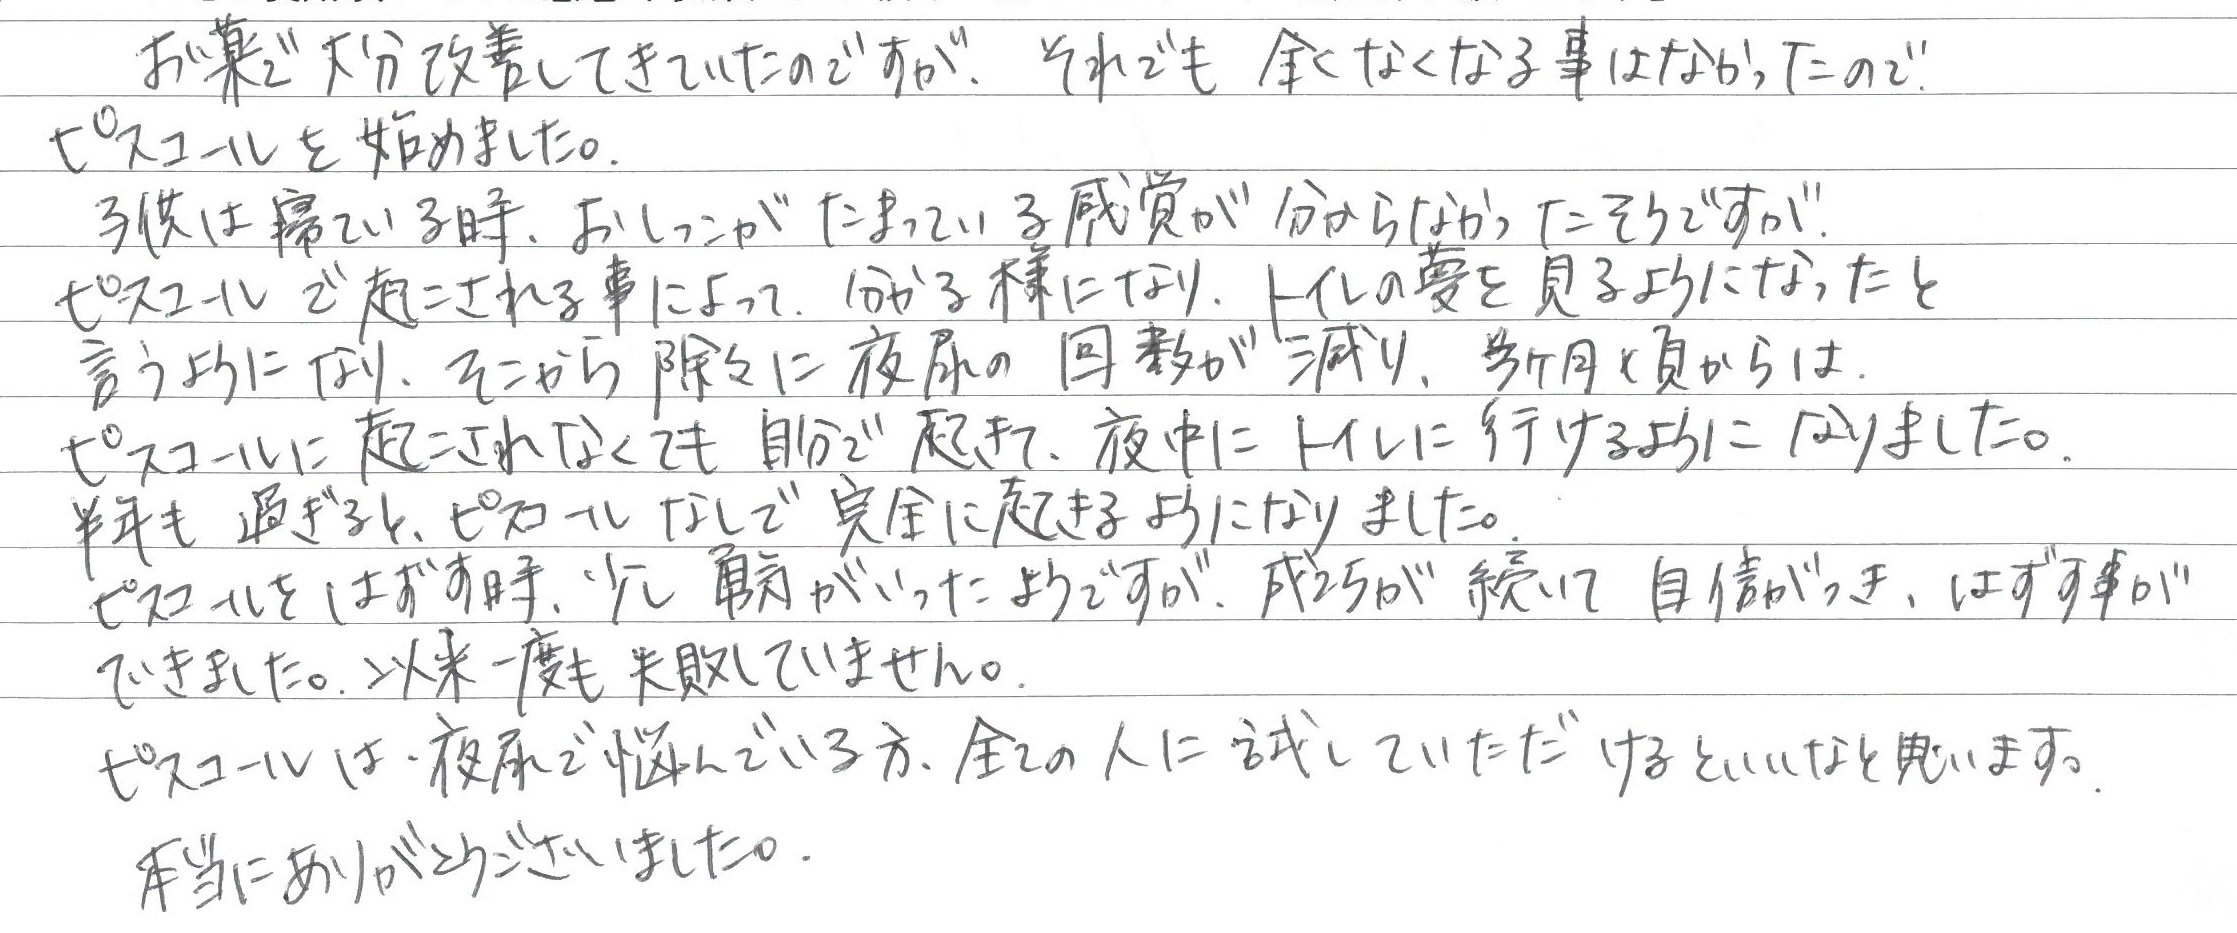 お薬で大分改善してきていたのですが、それでも全くなくなる事はなかったので、
ピスコールを始めました。
子供は寝ている時、おしっこがたまっている感覚が分からなかったそうですが、
ピスコールで起こされる事によって、分かる様になり、トイレの夢を見るようになったと
言うようになり、そこから除々に夜尿の回数が減り、3ヶ月頃からは、
ピスコールに起こされなくても自分で起きて、夜中にトイレに行けるようになりました。
半年も過ぎると、ピスコールなしで完全に起きるようになりました。
ピスコールをはずす時、少し勇気がいったようですが、成功が続いて自信がつき、はずす事が
できました。以来一度も失敗していません。
ピスコールは、夜尿で悩んでいる方、全ての人に試していただけるといいなと思います。
本当にありがとうございました。